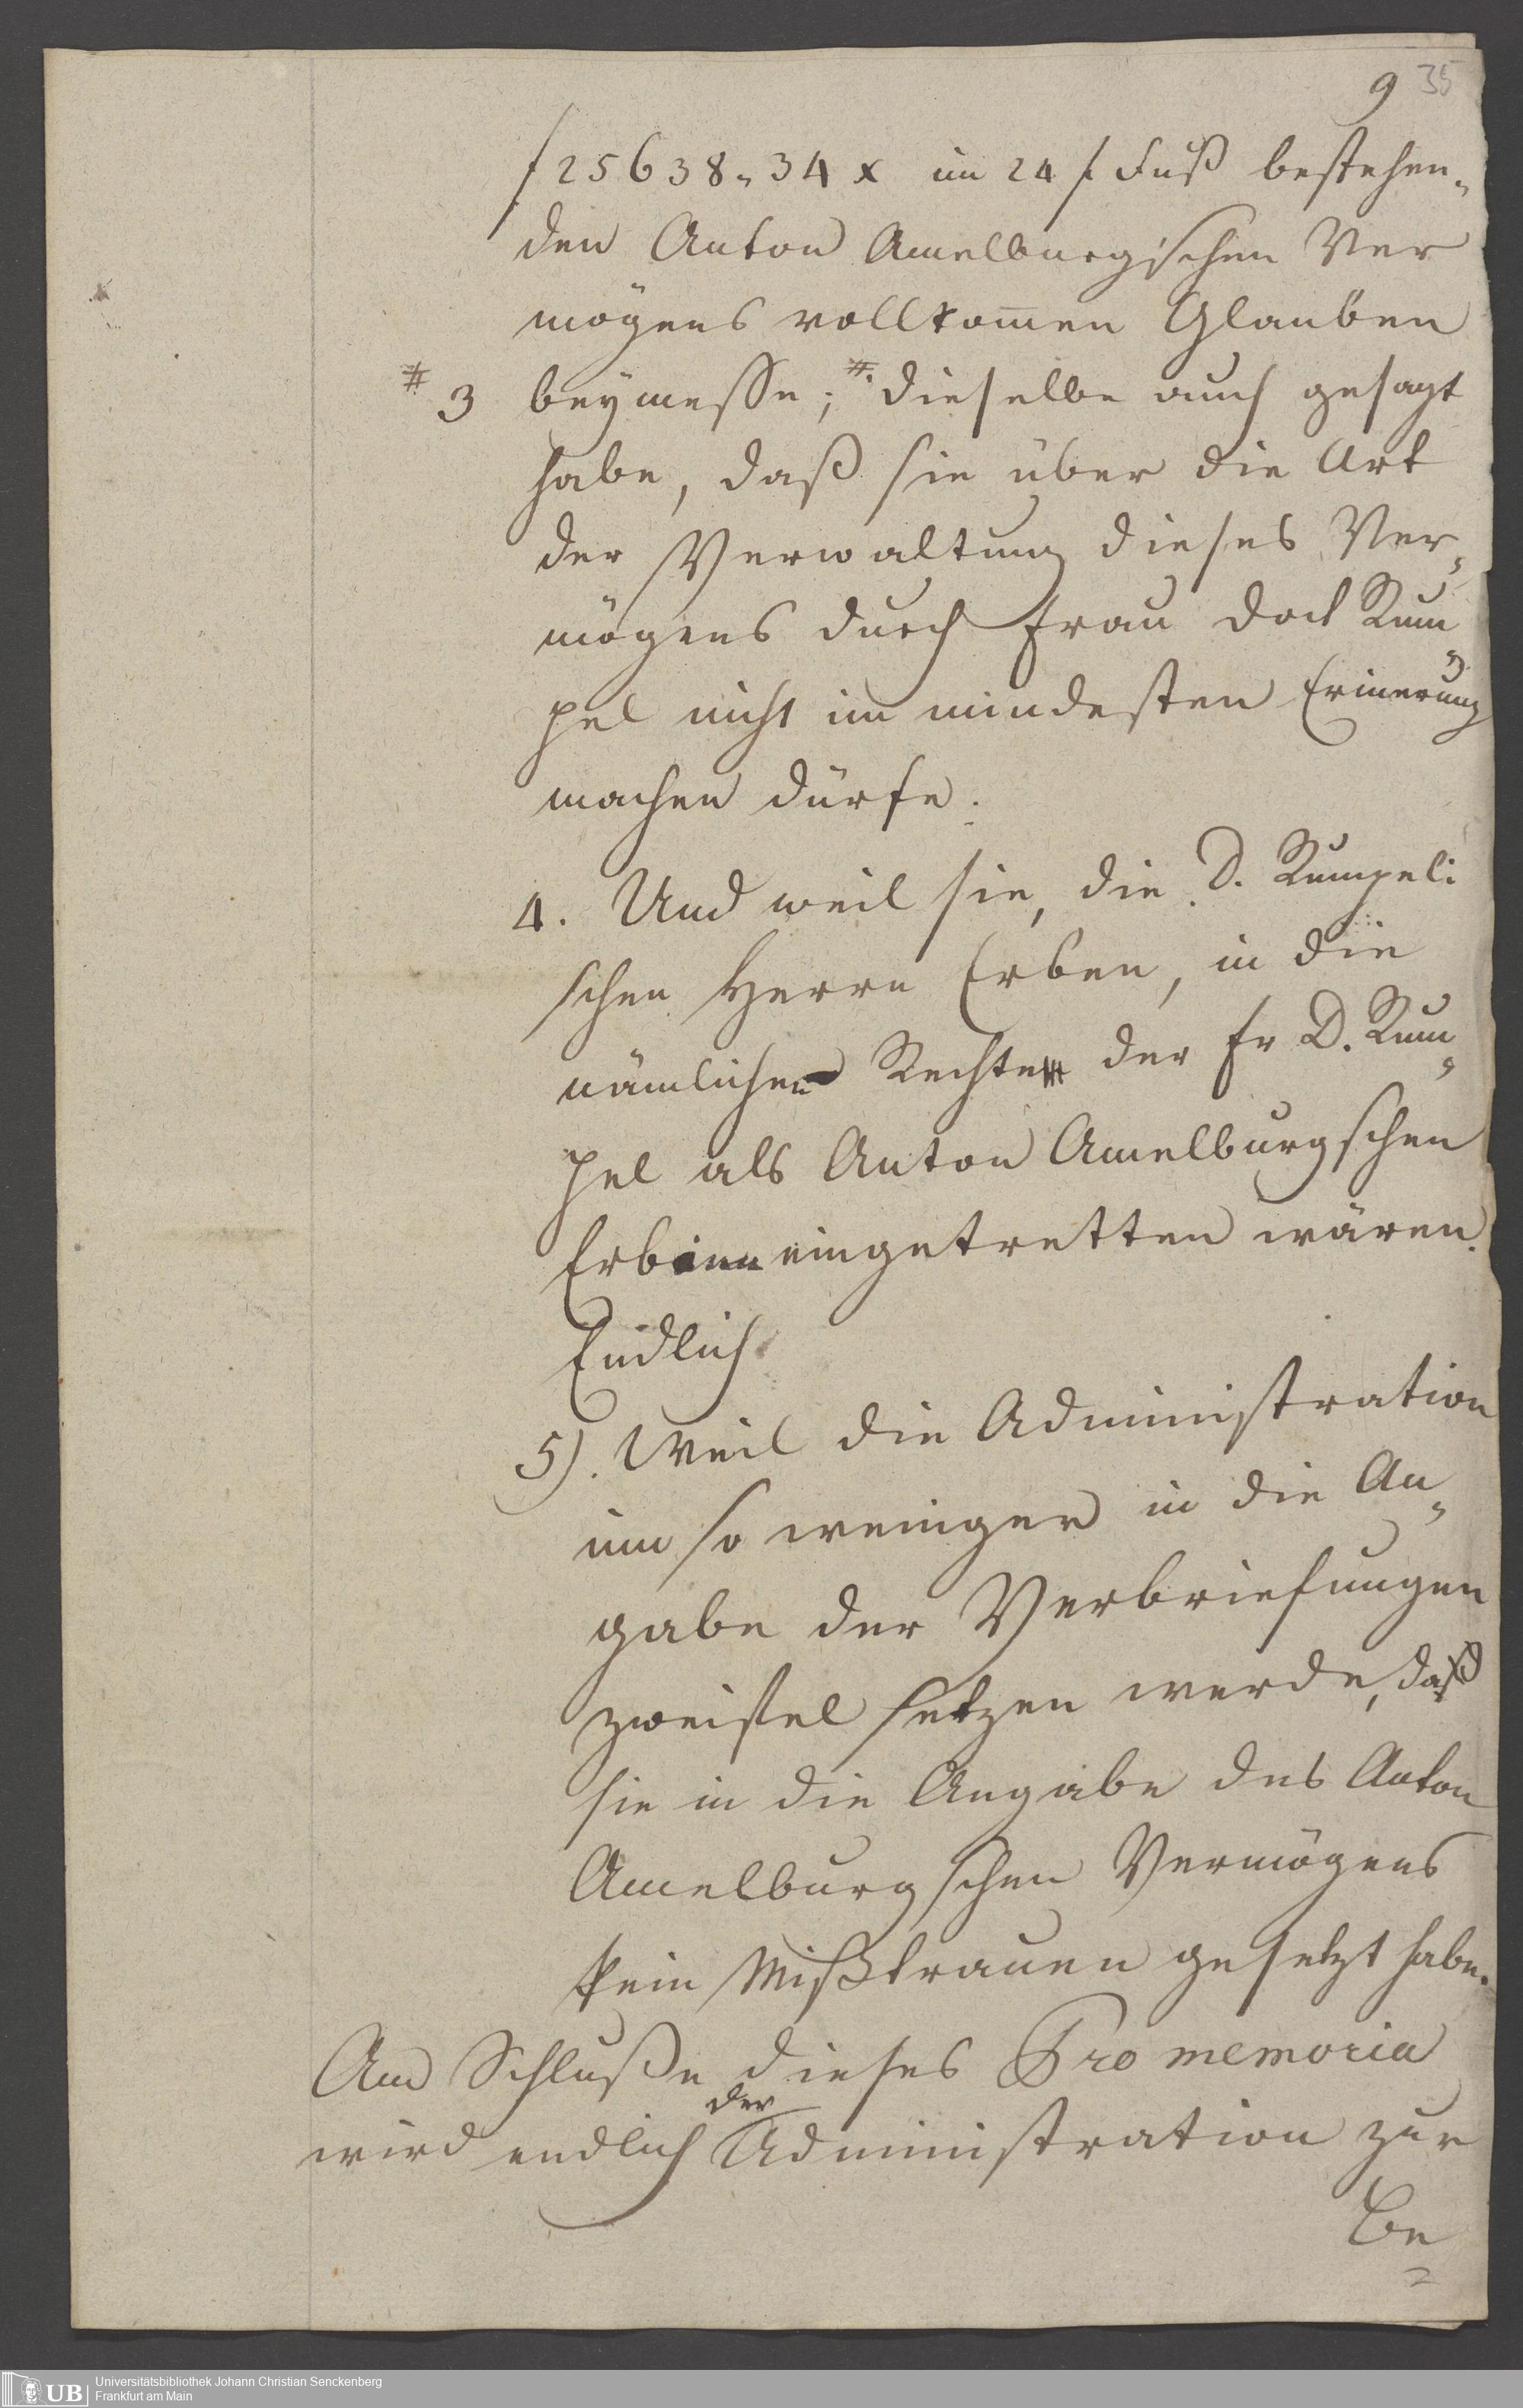 9 35
f 25638„34 x im 24 f. Fuß bestehen„
den Anton Amelburgischen Ver
mögens vollkom̅en Glauben
# 3 beymesse; # dieselbe auch gesagt
habe, daß sie über die Art
der Verwaltung dieses Ver„
mögens durch Frau Doct Rum„
pel nicht im mindesten Erinerung
machen dürfe.
4. Und weil sie, die D. Rumpeli
schen Herrn Erben, in die
nämlichen Rechte der Fr D. Rum„
pel als Anton Amelburgschen
Erbinn eingetretten wären.
Endlich
5). Weil die Administration
um so weniger in die An„
gabe der Verbriefungen
Zweifel setzen werde, daß
sie in die Angabe des Anton
Amelburgschen Vermögens
kein Mißtrauen gesetzt habe.
Am Schluße dieses Pro memoria
wird endlich der Administration zur
Be
Universitätsbibliothek Johann Christian Senckenberg
Frankfurt am Main
UB